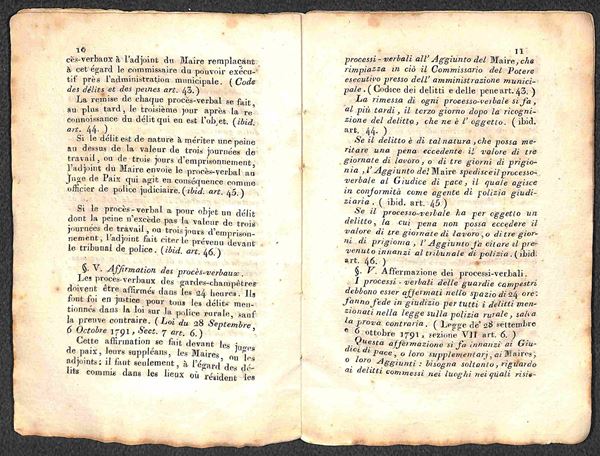 10
cès-verbaux à l'adjoint du Maire remplaçant
à cet égard le commissaire du pouvoir exécu-
tif près l'administration municipale. (Code
des délits et des peines art. 43.)
La remise de chaque procès-verbal se fait,
au plus tard, le troisième jour après la re-
connoissance du délit qui en est l'objet. (ibid.
art. 44.)
Si le délit est de nature à mériter une peine
au dessus de la valeur de trois journées de
travail, ou de trois jours d'emprisonnement,
l'adjoint du Maire envoie le procès-verbal au
Juge de Paix qui agit en conséquence comme
officier de police judiciaire. (ibid. art. 45.)
Si le procès-verbal a pour objet un délit
dont la peine n'excède pas la valeur de trois
journées de travail, ou trois jours d'emprison-
nement, l'adjoint fait citer le prévenu devant
le tribunal de police. (ibid. art. 46.)
§. V. Affirmation des procès-verbaux.
Les procès-verbaux des gardes-champêtres
doivent être affirmés dans les 24 heures. Ils
font foi en justice pour tous les délits men-
tionnés dans la loi sur la police rurale, sauf
la preuve contraire. (Loi du 28 Septembre,
6 Octobre 1791, Sect. 7 art. 6.)
Cette affirmation se fait devant les juges
de paix, leurs suppléans, les Maires, ou les
adjoints; il faut seulement, à l'égard des dé-
lits commis dans les lieux où résident les
11
processi-verbali all'Aggiunto del Maire, che
rimpiazza in ciò il Commissario del Potere
esecutivo presso dell'amministrazione munici-
pale. (Codice dei delitti e delle pene art. 43.)
La rimessa di ogni processo-verbale si fa,
al più tardi, il terzo giorno dopo la ricogni-
zione del delitto, che ne è l'oggetto. (ibid.
art. 44.)
Se il delitto è di tal natura, che possa me-
ritare una pena eccedente il valore di tre
giornate di lavoro, o di tre giorni di prigio-
nia, l'Aggiunto del Maire spedisce il processo-
verbale al Giudice di pace, il quale agisce
in conformità come agente di polizia giudi-
ziaria. (ibid. art. 45.)
Se il processo-verbale ha per oggetto un
delitto, la cui pena non possa eccedere il
valore di tre giornate di lavoro, o di tre gior-
ni di prigionia, l'Aggiunto fa citare il pre-
venuto innanzi al tribunale di polizia. (ibid.
art. 46.)
§. V. Affermazione dei processi-verbali.
I processi-verbali delle guardie campestri
debbono esser affermati nello spazio di 24 ore:
fanno fede in giudizio per tutti i delitti men-
zionati nella legge sulla polizia rurale, salva
la prova contraria. (Legge de' 28 settembre
e 6 ottobre 1791, sezione VII art. 6.)
Questa affermazione si fa innanzi ai Giu-
dici di pace, o loro supplementarj, ai Maires,
o loro Aggiunti: bisogna soltanto, riguardo
ai delitti commessi nei luoghi nei quali risie-